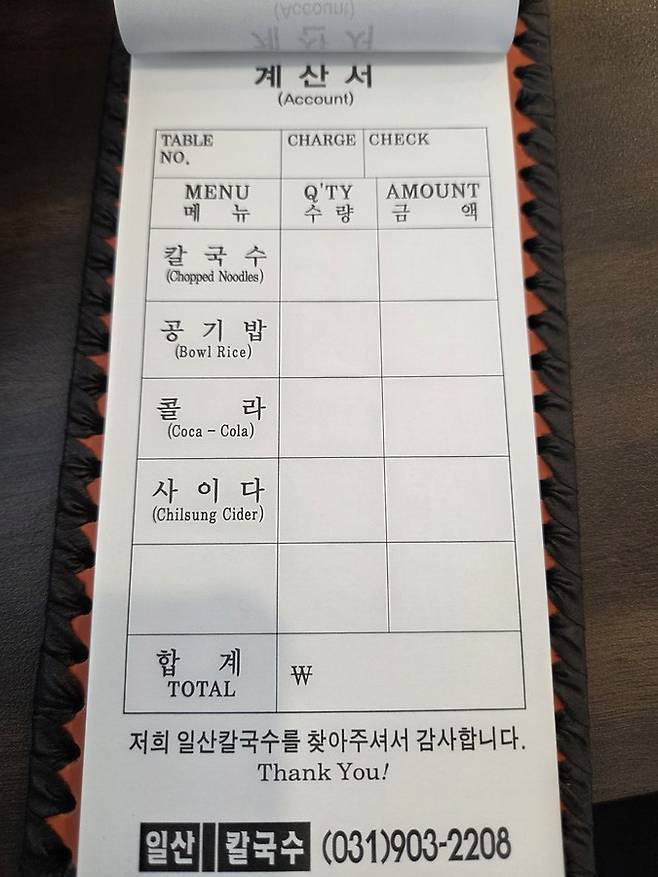 (Account)
계 산 서
계 산 서
(Account)
TABLE NO.
CHARGE
CHECK
MENU
메 뉴
Q'TY
수 량
AMOUNT
금 액
칼 국 수
(Chopped Noodles)
공 기 밥
(Bowl Rice)
콜 라
(Coca - Cola)
사 이 다
(Chilsung Cider)
합 계
TOTAL
₩
저희 일산칼국수를 찾아주셔서 감사합니다.
Thank You!
일산 칼국수 (031)903-2208